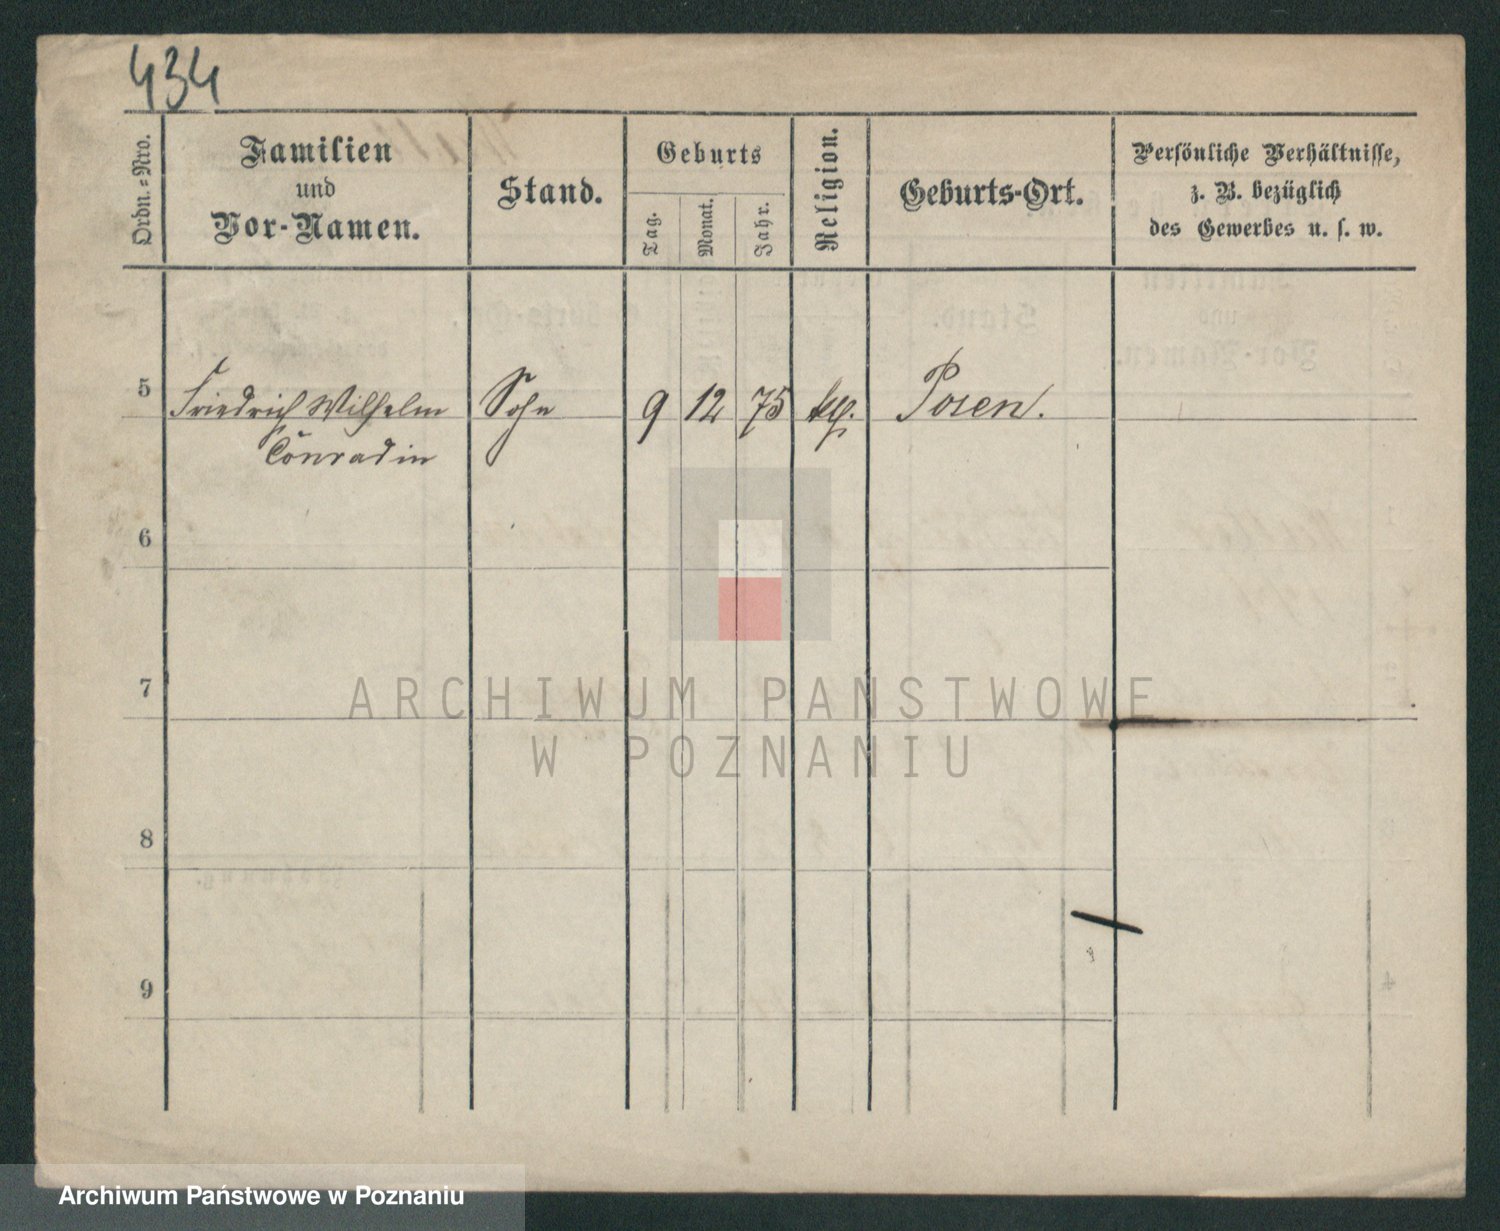 434
Ordn.=Nro.
Familien
und
Vor-Namen.
Stand.
Geburts
Tag.
Monat.
Jahr.
Religion.
Geburts-Ort.
Persönliche Verhältnisse,
z. B. bezüglich
des Gewerbes u. s. w.
5 Friedrich Wilhelm Sohn 9 12 75 Posen.
Conradin
6
7
ARCHIWUM PAŃSTWOWE
W POZNANIU
8
9
Archiwum Państwowe w Poznaniu